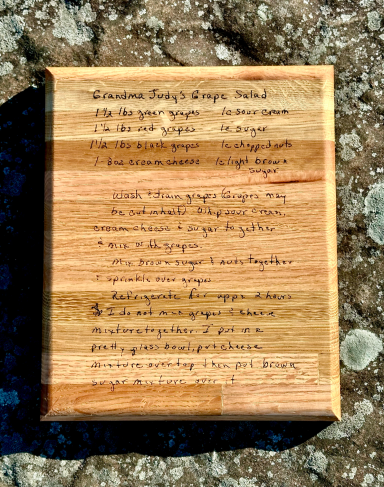 Grandma Judy's Grape Salad
1 1/2 lbs green grapes 1c sour cream
1 1/2 lbs red grapes 1c sugar
1 1/2 lbs black grapes 1c chopped nuts
1-8oz cream cheese 1c light brown
sugar
Wash & drain grapes (grapes may
be cut in half) Whip sour cream,
cream cheese & sugar together
& mix with grapes.
Mix brown sugar & nuts together
& sprinkle over grapes
Refrigerate for appx 2 hours
* I do not mix grapes & cheese
mixture together. I put in a
pretty glass bowl, put cheese
mixture over top then put brown
sugar mixture over it